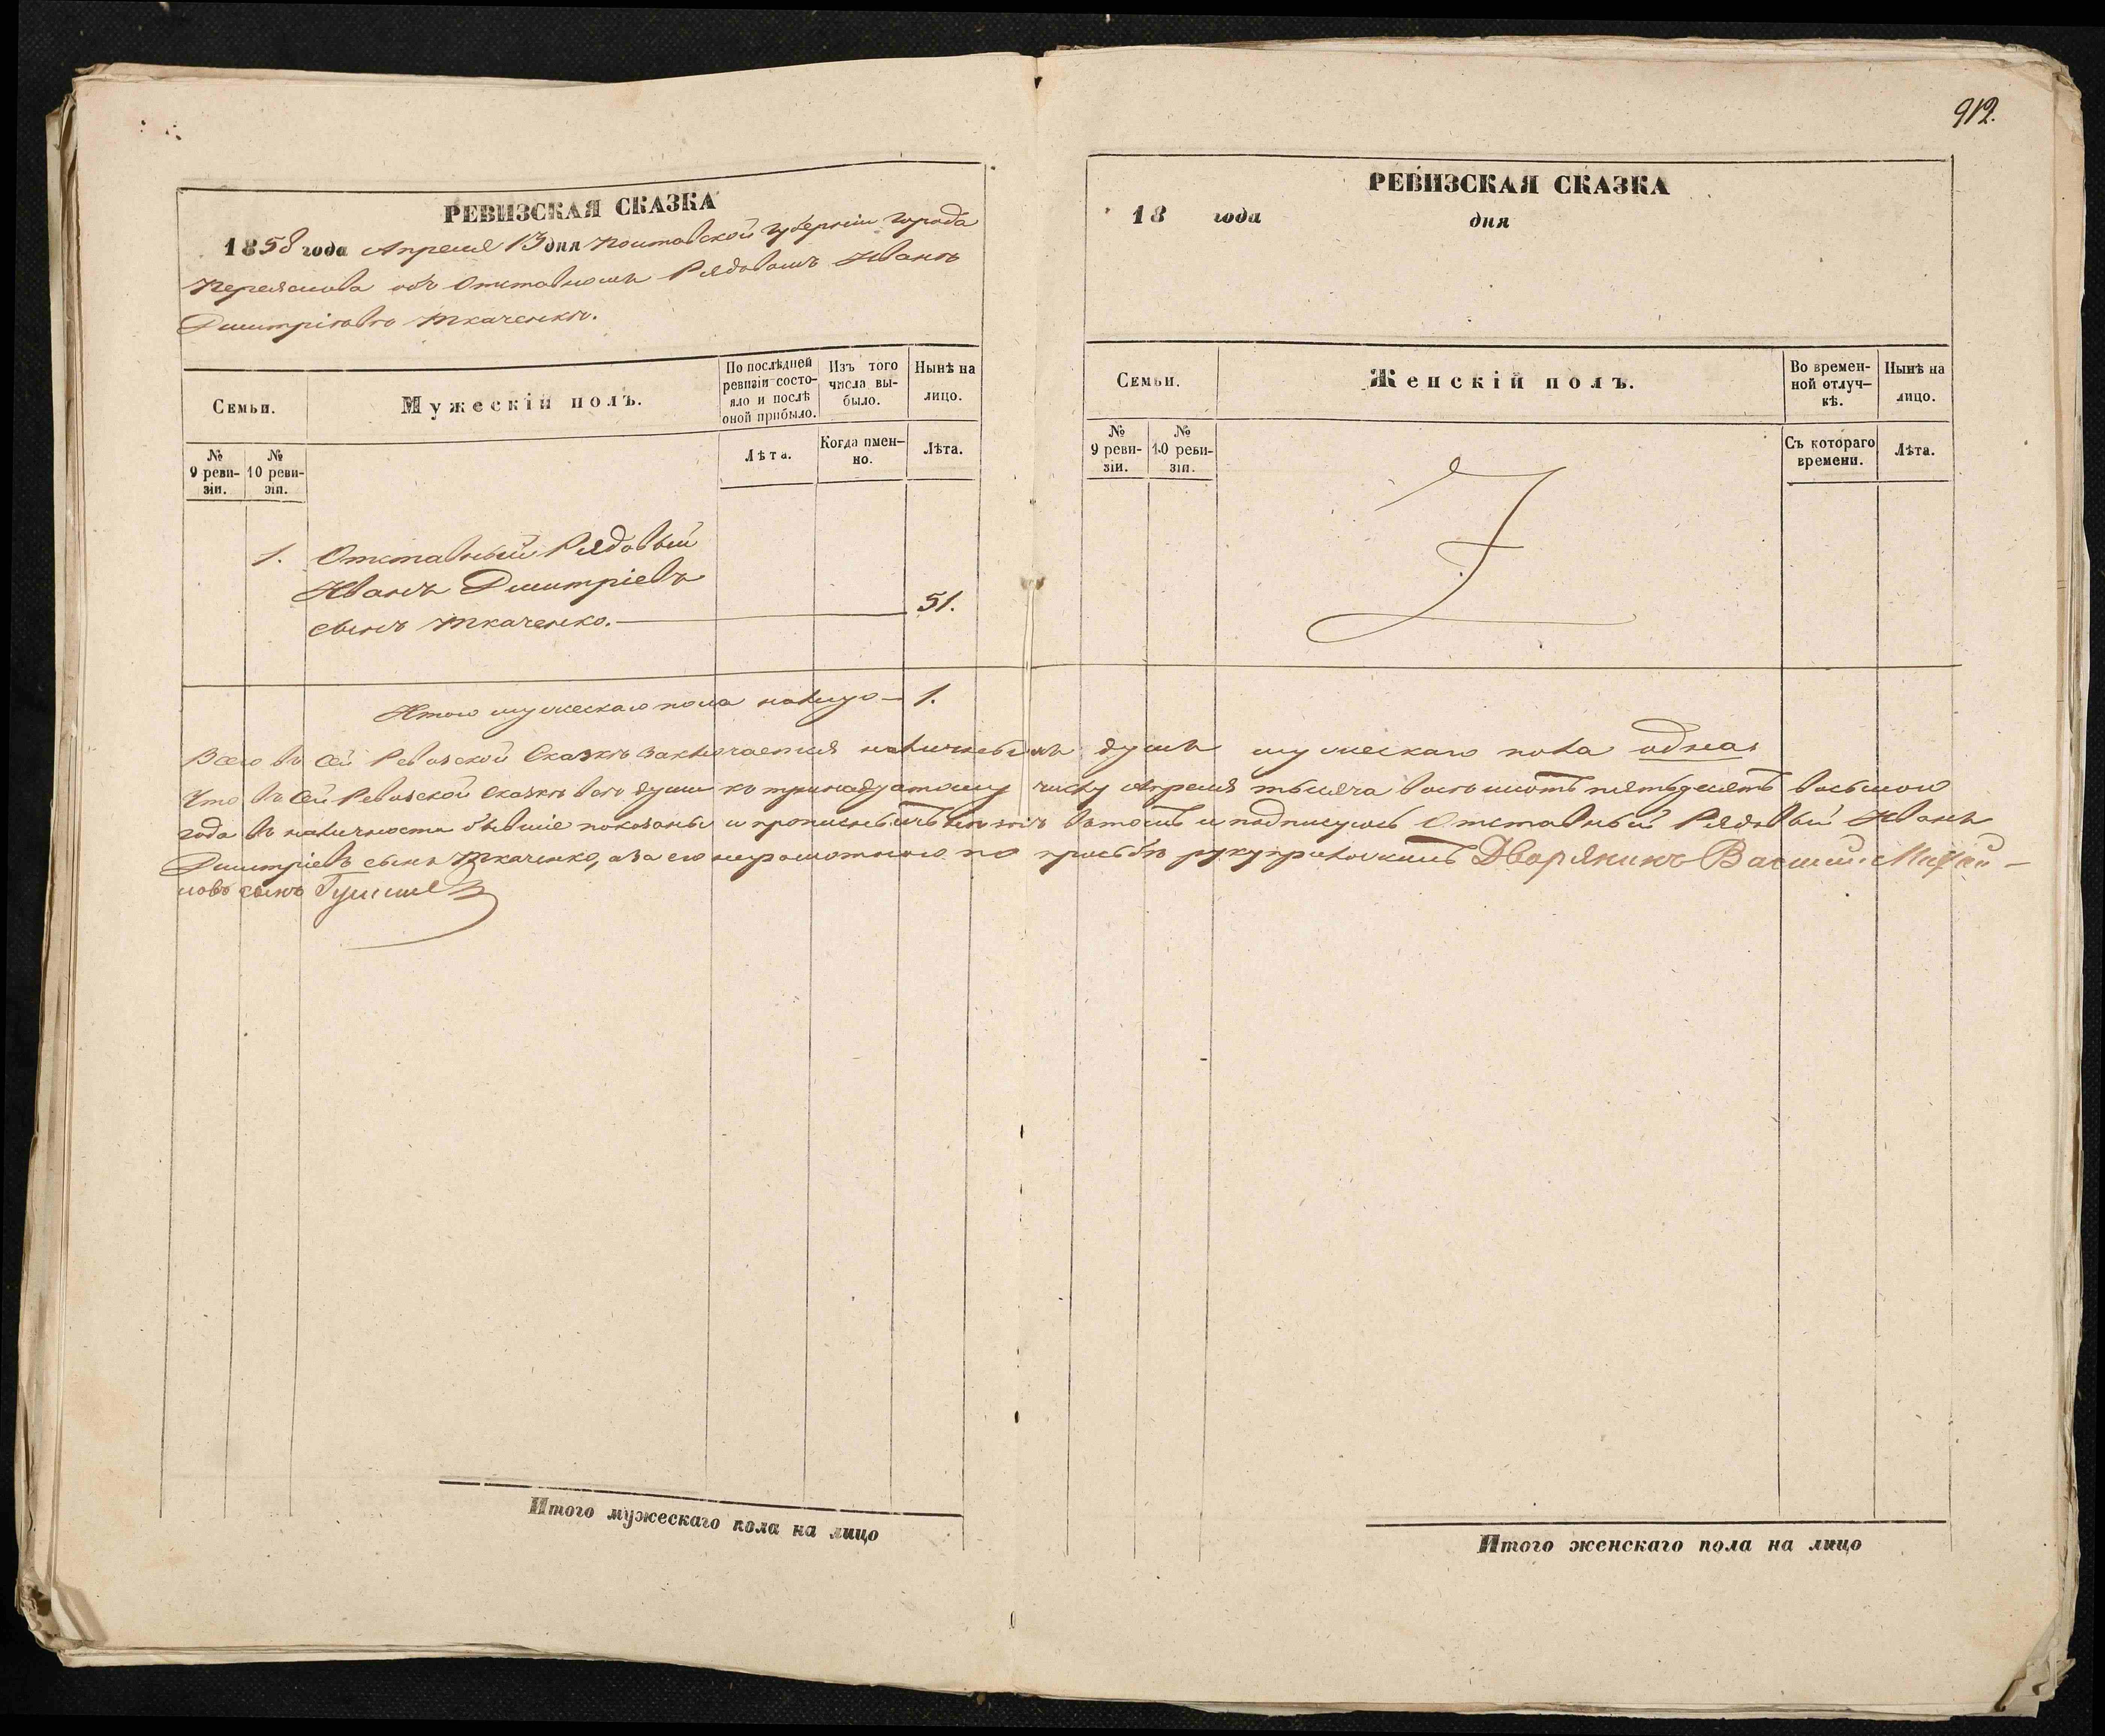 912.
РЕВИЗСКАЯ СКАЗКА
1858 года Апреля 13 дня Полтавской Губерніи города
Переяслова объ Отставномъ Рядовомъ Иванѣ
Дмитріевѣ Ткаченкѣ.
Семьи.
Мужескій полъ.
По послѣдней ревизіи состо-
яло и послѣ оной прибыло.
Изъ того числа вы-
было.
Нынѣ на лицо.
№ 9 реви-
зіи.
№ 10 реви-
зіи.
Лѣта.
Когда имен-
но.
Лѣта.
1. Отставный Рядовый
Иванъ Дмитріевъ
сынъ Ткаченко. 51.
Итого мужескаго пола налицо 1.
РЕВИЗСКАЯ СКАЗКА
18 года дня
Семьи.
Женскій полъ.
Во времен-
ной отлуч-
кѣ.
Нынѣ на
лицо.
№ 9 реви-
зіи.
№ 10 реви-
зіи.
Съ котораго
времени.
Лѣта.
Всего въ сей Ревизской Сказкѣ заключается наличныхъ душъ мужескаго пола одна
Что въ сей Ревизской сказкѣ всѣ души къ тринадцатому числу Апреля тысяча восемьсотъ пятьдесятъ восьмого
года въ наличности бывшіе показаны и прописныхъ нѣтъ въ томъ и подписуюсь Отставный Рядовый Иванъ
Дмитріевъ сынъ Ткаченко, а за его неграмотного по просьбѣ руку приложилъ Дворянинъ Василій Михай-
ловъ сынъ
Итого мужескаго пола на лицо
Итого женскаго пола на лицо